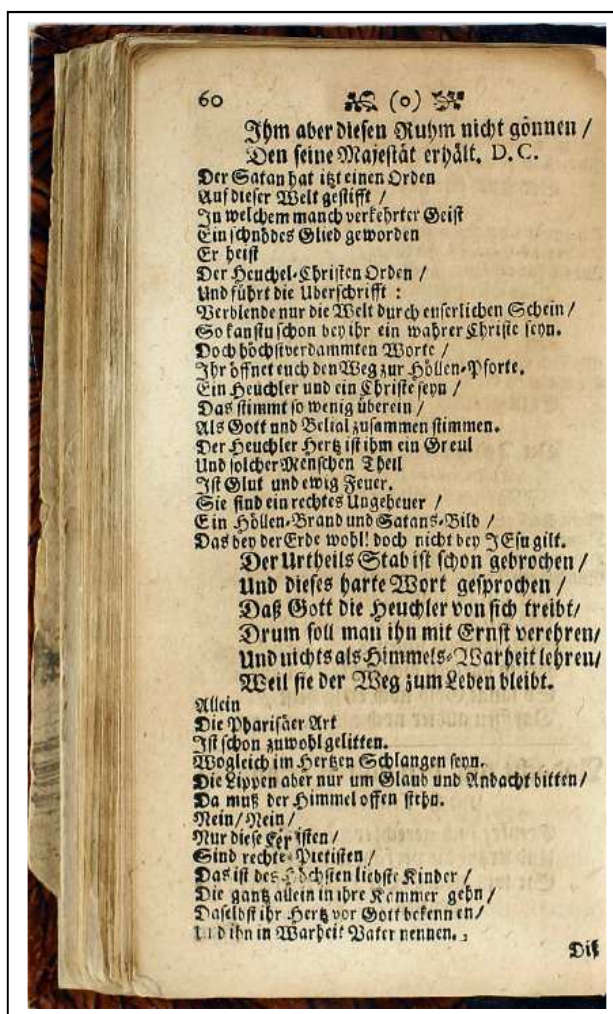 60 (0)
Ihm aber diesen Ruhm nicht gönnen /
Den seine Majestät erhält. D. C.
Der Satan hat itzt einen Orden
Auf dieser Welt gestifft /
In welchem manch verkehrter Geist
Ein schnödes Glied geworden
Er heist
Der Heuchel-Christen Orden /
Und führt die Uberschrifft :
Verblende nur die Welt durch euserlichen Schein /
So kanstu schon bey ihr ein wahrer Christe seyn.
Doch höchstverdammten Worte /
Ihr öffnet euch den Weg zur Höllen-Pforte.
Ein Heuchler und ein Christe seyn /
Das stimmt so wenig überein /
Als Gott und Belial zusammen stimmen.
Der Heuchler Hertz ist ihm ein Greul
Und solcher Menschen Theil
Ist Glut und ewig Feuer.
Sie sind ein rechtes Ungeheuer /
Ein Höllen-Brand und Satans-Bild /
Das bey der Erde wohl! doch nicht bey JEsu gilt.
Der Urtheils Stab ist schon gebrochen /
Und dieses harte Wort gesprochen /
Daß Gott die Heuchler von sich treibt /
Drum soll man ihn mit Ernst verehren /
Und nichts als Himmels-Warheit lehren /
Weil sie der Weg zum Leben bleibt.
Allein
Die Pharisäer Art
Ist schon zuwohl gelitten.
Wogleich im Hertzen Schlangen seyn.
Die Lippen aber nur um Glaub und Andacht bitten /
Da muß der Himmel offen stehn.
Nein / Nein /
Nur diese
Sind rechte Pietisten /
Das ist des Höchsten liebste Kinder /
Die gantz allein in ihre Kammer gehn /
Daselbst ihr Hertz vor Gott bekennen /
Und ihn in Warheit Vater nennen.
Diß